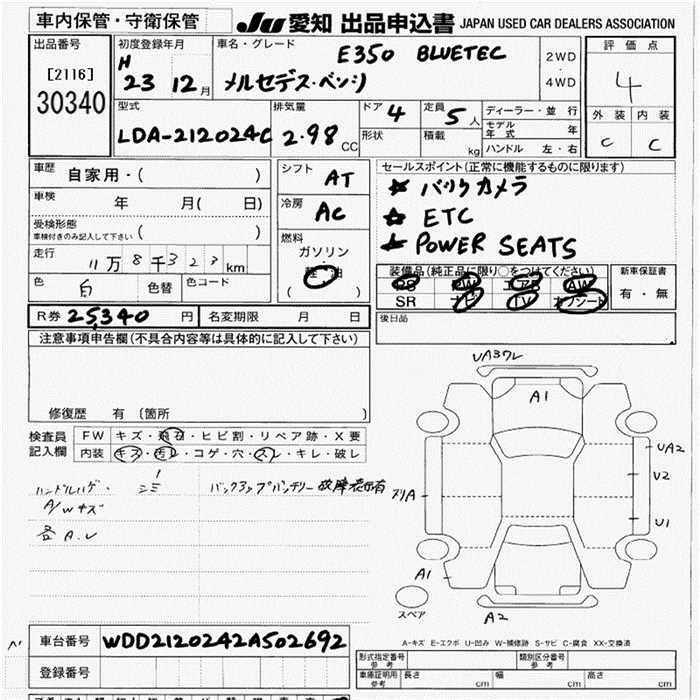 車内保管・守衛保管
JU 愛知 出品申込書 JAPAN USED CAR DEALERS ASSOCIATION
出品番号
[2116]
30340
初度登録年月
H 23 12月
車名・グレード
E350 BLUETEC
メルセデス・ベンツ
2WD
・
4WD
評価点
4
外装 内装
C C
型式
LDA-212024C
排気量
2.98 CC
ドア 4
形状
定員 5人
積載 kg
ディーラー・並行
モデル年式 年
ハンドル 左・右
車歴 自家用・( )
車検 年 月( 日)
受検形態
車検付きのみ記入して下さい ( )
走行 11万8千323km
色 白 色替 色コード
R券 25,340円 名変期限 月 日
シフト AT
冷房 AC
燃料
ガソリン
・
軽油
( )
セールスポイント(正常に機能するものに限ります)
☆ バックカメラ
☆ ETC
☆ POWER SEATS
装備品(純正品に限り○をつけてください)
PS PW エアB AW
SR ナビ TV カワシート
新車保証書
有・無
後日品
注意事項申告欄(不具合内容等は具体的に記入して下さい)
修復歴 有 〔箇所 〕
検査員記入欄
FW キズ・飛石・ヒビ割・リペア跡・X要
内装 キズ・汚レ・コゲ・穴・スレ・キレ・破レ
バックアップバッテリー故障表示有
A/Wキズ
各A.U
UA3ワレ
A1
UA2
U2
U1
A1
A2
スペア
A-キズ E-エクボ U-凹み W-補修跡 S-サビ C-腐食 XX-交換済
車台番号 WDD2120242A502692
登録番号
形式指定番号 参考
類別区分番号 参考
車庫証明用 参考 長さ cm 幅 cm 高さ cm